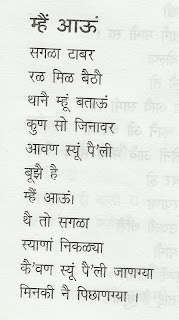 म्हैं आऊं
सगळा टाबर
रळ मिळ बैठी
थानै म्हूं बताऊं
कुण सो जिनावर
आवण स्यूं पै'ली
बूझै है
म्हैं आऊं।
थै तो सगळा
स्याणां निकळ्या
कै'वण स्यूं पै'ली जाणग्या
मिनकी नै पिछाणग्या ।